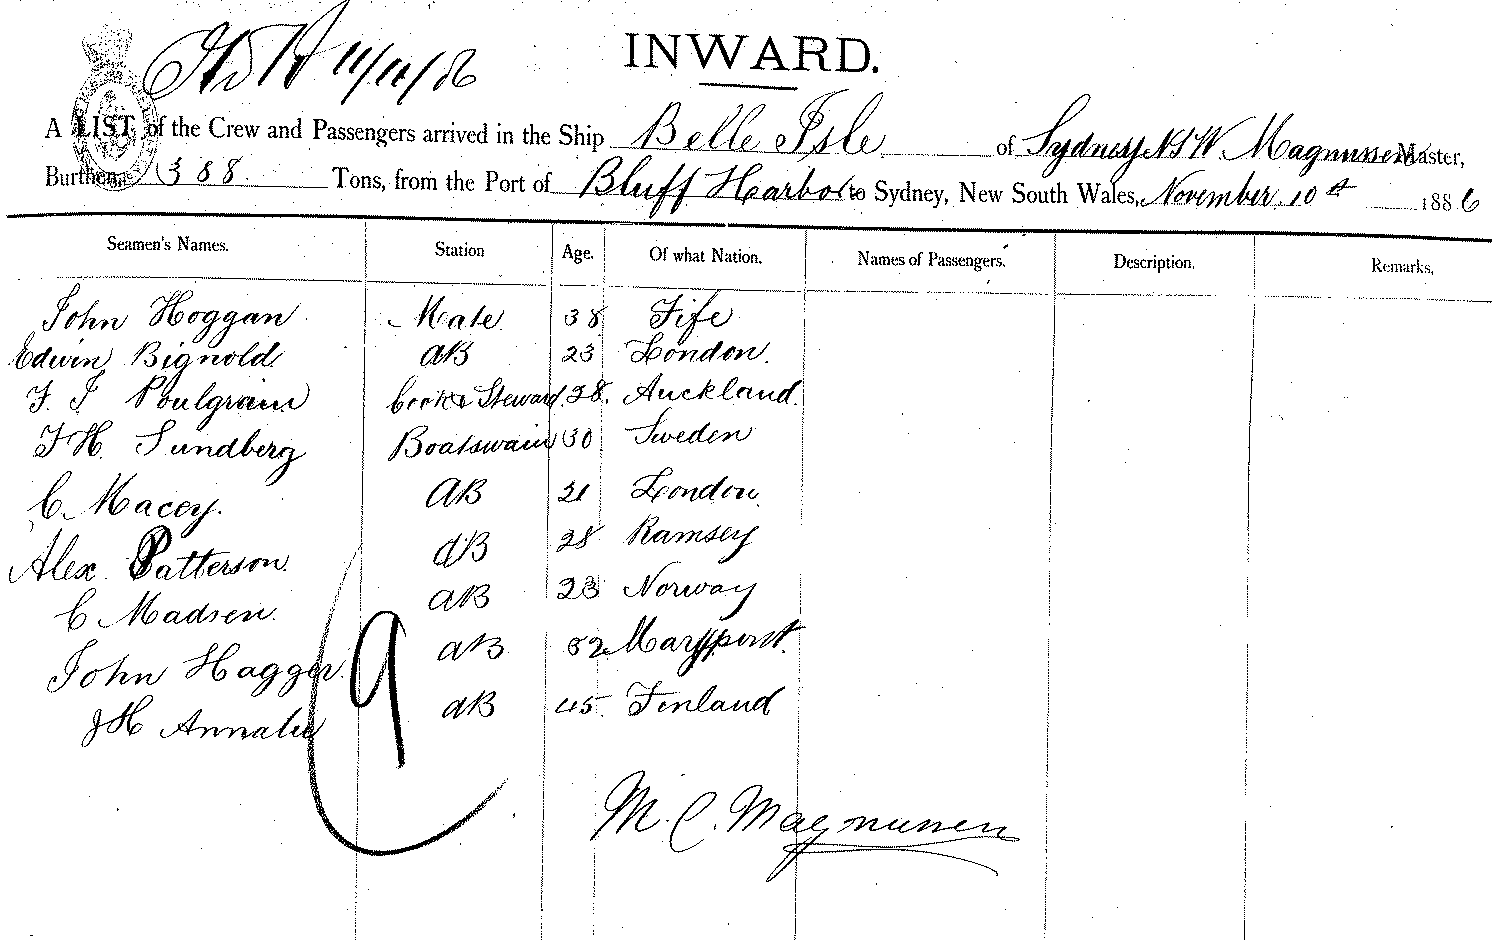 INWARD.
11/11/86
A LIST of the Crew and Passengers arrived in the Ship Belle Isle of Sydney NSW Magnussen Master,
Burthen, 388 Tons, from the Port of Bluff Harbor to Sydney, New South Wales, November 10th 1886
Seamen's Names. Station Age. Of what Nation. Names of Passengers. Description. Remarks.
John Hoggan Mate 38 Fife
Edwin Bignold AB 23 London.
F. J Poulgrain Cook & Steward 28. Auckland.
F H. Sundberg Boatswain 30 Sweden
C. Macey. AB 21 London.
Alex Patterson. AB 28 Ramsey
C Madsen. AB 23 Norway
John Hagger. AB 52 Maryport.
JH AB 45. Finland
9
M. C. Magnussen